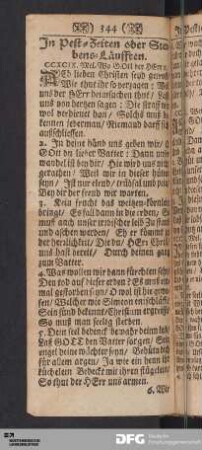 344
In Pest-Zeiten oder Ster-
bens-Läufften.
CCXCIX. Mel. Wo GOtt der HErr
Ach lieben Christen seyd getrost
Wie thut ihr so verzagen: Weil
uns der HErr heimsuchen thut/ Laßt
uns von hertzen sagen: Die straff wir
wol verdienet han/ Solchs muß be-
kennen jederman/ Niemand darff sich
ausschliessen.
2. In deine händ uns geben wir/ O
GOtt du lieber Vatter: Dann unser
wandel ist bey dir/ Hie wird uns nicht
gerathen/ Weil wir in dieser hütten
seyn/ Ist nur elend/ trübsal und pein
Bey dir der freud wir warten.
3. Kein frucht das weitzen-körnlein
bringt/ Es fall dann in die erden/ So
muß auch unser irrdischer leib Zu staub
und aschen werden/ Eh er kommt zu
der herrlichkeit/ Die du/ HErr Christ
uns hast bereit/ Durch deinen gang
zum Vatter.
4. Was wollen wir dann fürchten sehr
Den tod auf dieser erden? Es muß ein-
mal gestorben seyn/ O wol ist hie gewe-
sen/ Welcher wie Simeon entschläfft
Sein sünd bekennt/ Christum ergreifft
So muß man seelig sterben.
5. Dein seel bedenck bewahr deinn leib
Laß GOTT den Vatter sorgen/ Sein
engel deine wächter seyn/ Behüten dich
für allem argen/ Ja wie ein henn ihr
küchelein Bedeckt mit ihren flügelein/
So thut der HErr uns armen.
6. Wir
DFG
Deutsche
Forschungsgemeinschaft